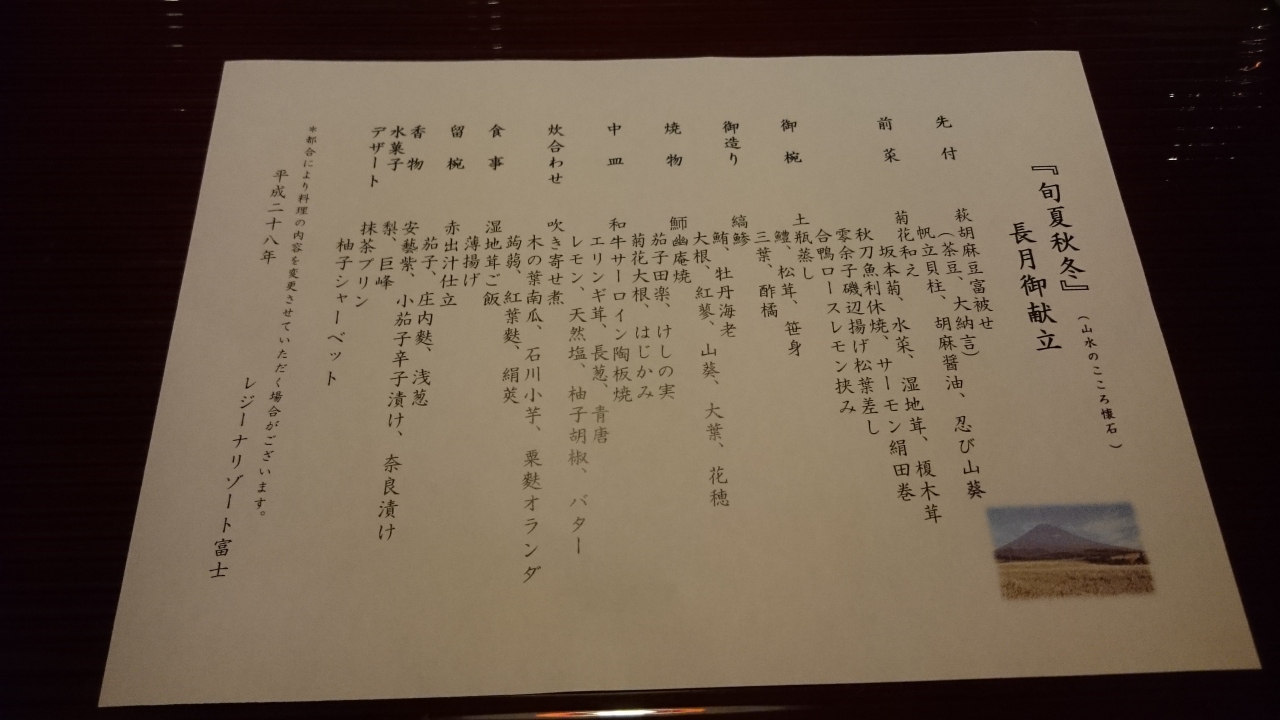 『旬夏秋冬』
(山水のこころ懐石)
長月御献立
先付
萩胡麻豆富被せ
(茶豆、大納言)
帆立貝柱、胡麻醤油、忍び山葵
前菜
菊花和え
坂本菊、水菜、湿地茸、榎木茸
秋刀魚利休焼、サーモン絹田巻
零余子磯辺揚げ松葉差し
合鴨ロースレモン挟み
御椀
土瓶蒸し
鱧、松茸、笹身
三葉、酢橘
御造り
縞鯵
鮪、牡丹海老
大根、紅蓼、山葵、大葉、花穂
焼物
鰤幽庵焼
茄子田楽、けしの実
菊花大根、はじかみ
中皿
和牛サーロイン陶板焼
エリンギ茸、長葱、青唐
レモン、天然塩、柚子胡椒、バター
炊合わせ
吹き寄せ煮
木の葉南瓜、石川小芋、粟麩オランダ
蒟蒻、紅葉麩、絹莢
食事
湿地茸ご飯
薄揚げ
留椀
赤出汁仕立
茄子、庄内麩、浅葱
香物
安藝紫、小茄子辛子漬け、奈良漬け
水菓子
梨、巨峰
デザート
抹茶プリン
柚子シャーベット
＊都合により料理の内容を変更させていただく場合がございます。
平成二十八年
レジーナリゾート富士